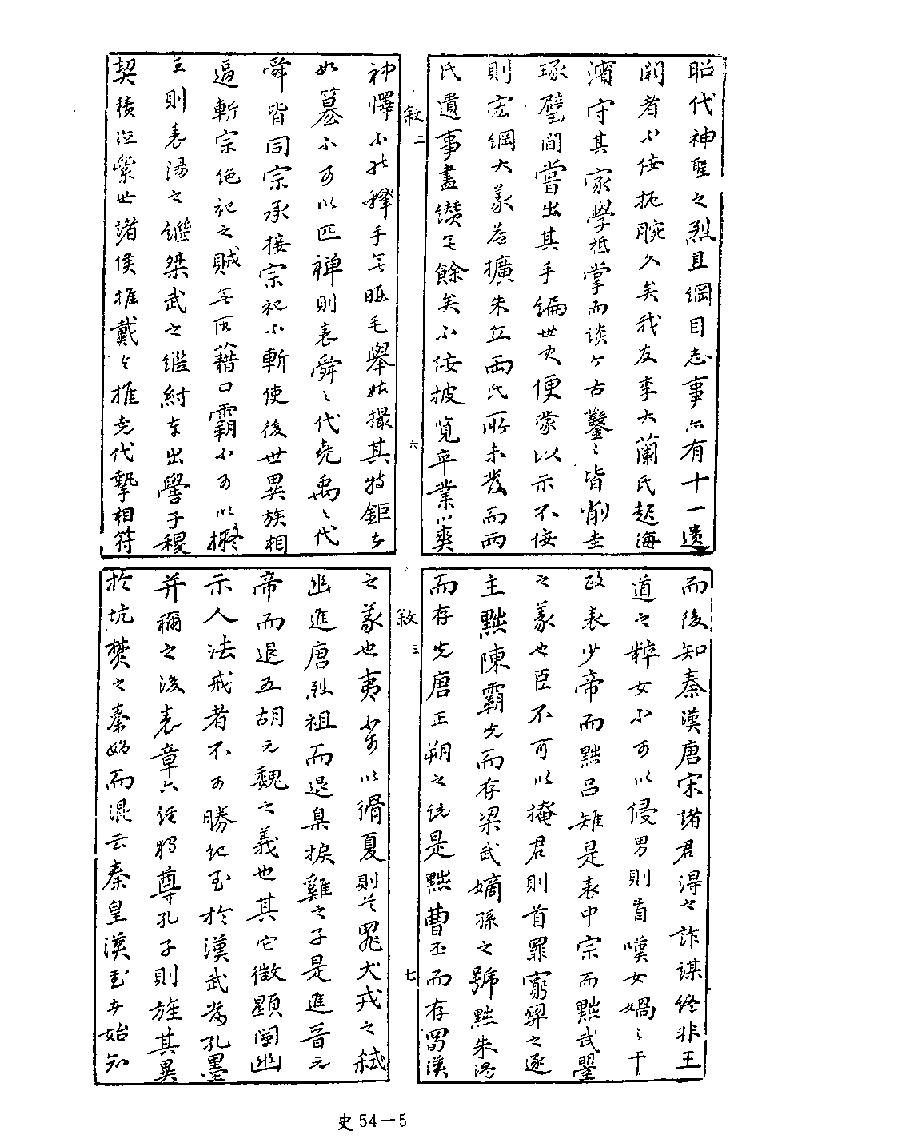 昭代神聖之烈且綱目志事尚有十一遺
闕者不佞扼腕久矣我友李大蘭氏起海
濱守其家學抵掌而談今古鑿〻皆削圭
琢璧間嘗出其手編世史便蒙以示不佞
則宏綱大義益擴朱丘兩氏所未發而兩
氏遺事盡纘無餘矣不佞披覽卒業心爽
敘二 六
神懌不能釋手無暇毛舉姑撮其特鉅者
如篡不可以匹禪則表舜之代堯禹之代
舜皆同宗承接宗祀不斬使後世異族相
逼斬宗絕祀之賊無所藉口霸不可以擬
王則表湯之繼桀武之繼紂本出嚳子稷
契積德累世諸侯推戴〻推先代摯相符
而後知秦漢唐宋諸君得之詐謀終非王
道之粹女不可以侵男則首嘆女媧之干
政表少帝而黜呂雉是表中宗而黜武曌
之義也臣不可以掩君則首罪窮羿之逐
主黜陳霸先而存梁武嫡孫之號黜朱溫
而存先唐正朔之統是黜曹丕而存蜀漢
敘三 七
之義也夷不可以猾夏則首罪犬戎之弒
幽進唐烈祖而退臬捩雞之子是進晉元
帝而退五胡元魏之義也其它微顯闡幽
示人法戒者不可勝紀至於漢武為孔墨
并稱之後表章六經獨尊孔子則旌其異
於坑焚之秦始而混云秦皇漢武者始知
史54—5